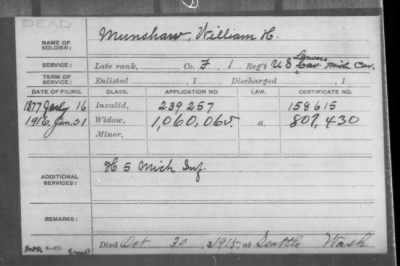 DEAD
NAME OF SOLDIER: Munshaw, William H.
SERVICE: Late rank, Co. F 1 Reg't U S Lancers Cav Mich Cav.
TERM OF SERVICE: Enlisted , 1 Discharged , 1
DATE OF FILING. CLASS. APPLICATION NO. CERTIFICATE NO.
1877 July 16 Invalid, 239257 158615
1916 Jan. 31 Widow, 1,060,065. a. 807,430
Minor,
ADDITIONAL SERVICES: H 5 Mich Inf.
REMARKS:
Died Oct 30, 1915, at Seattle Wash